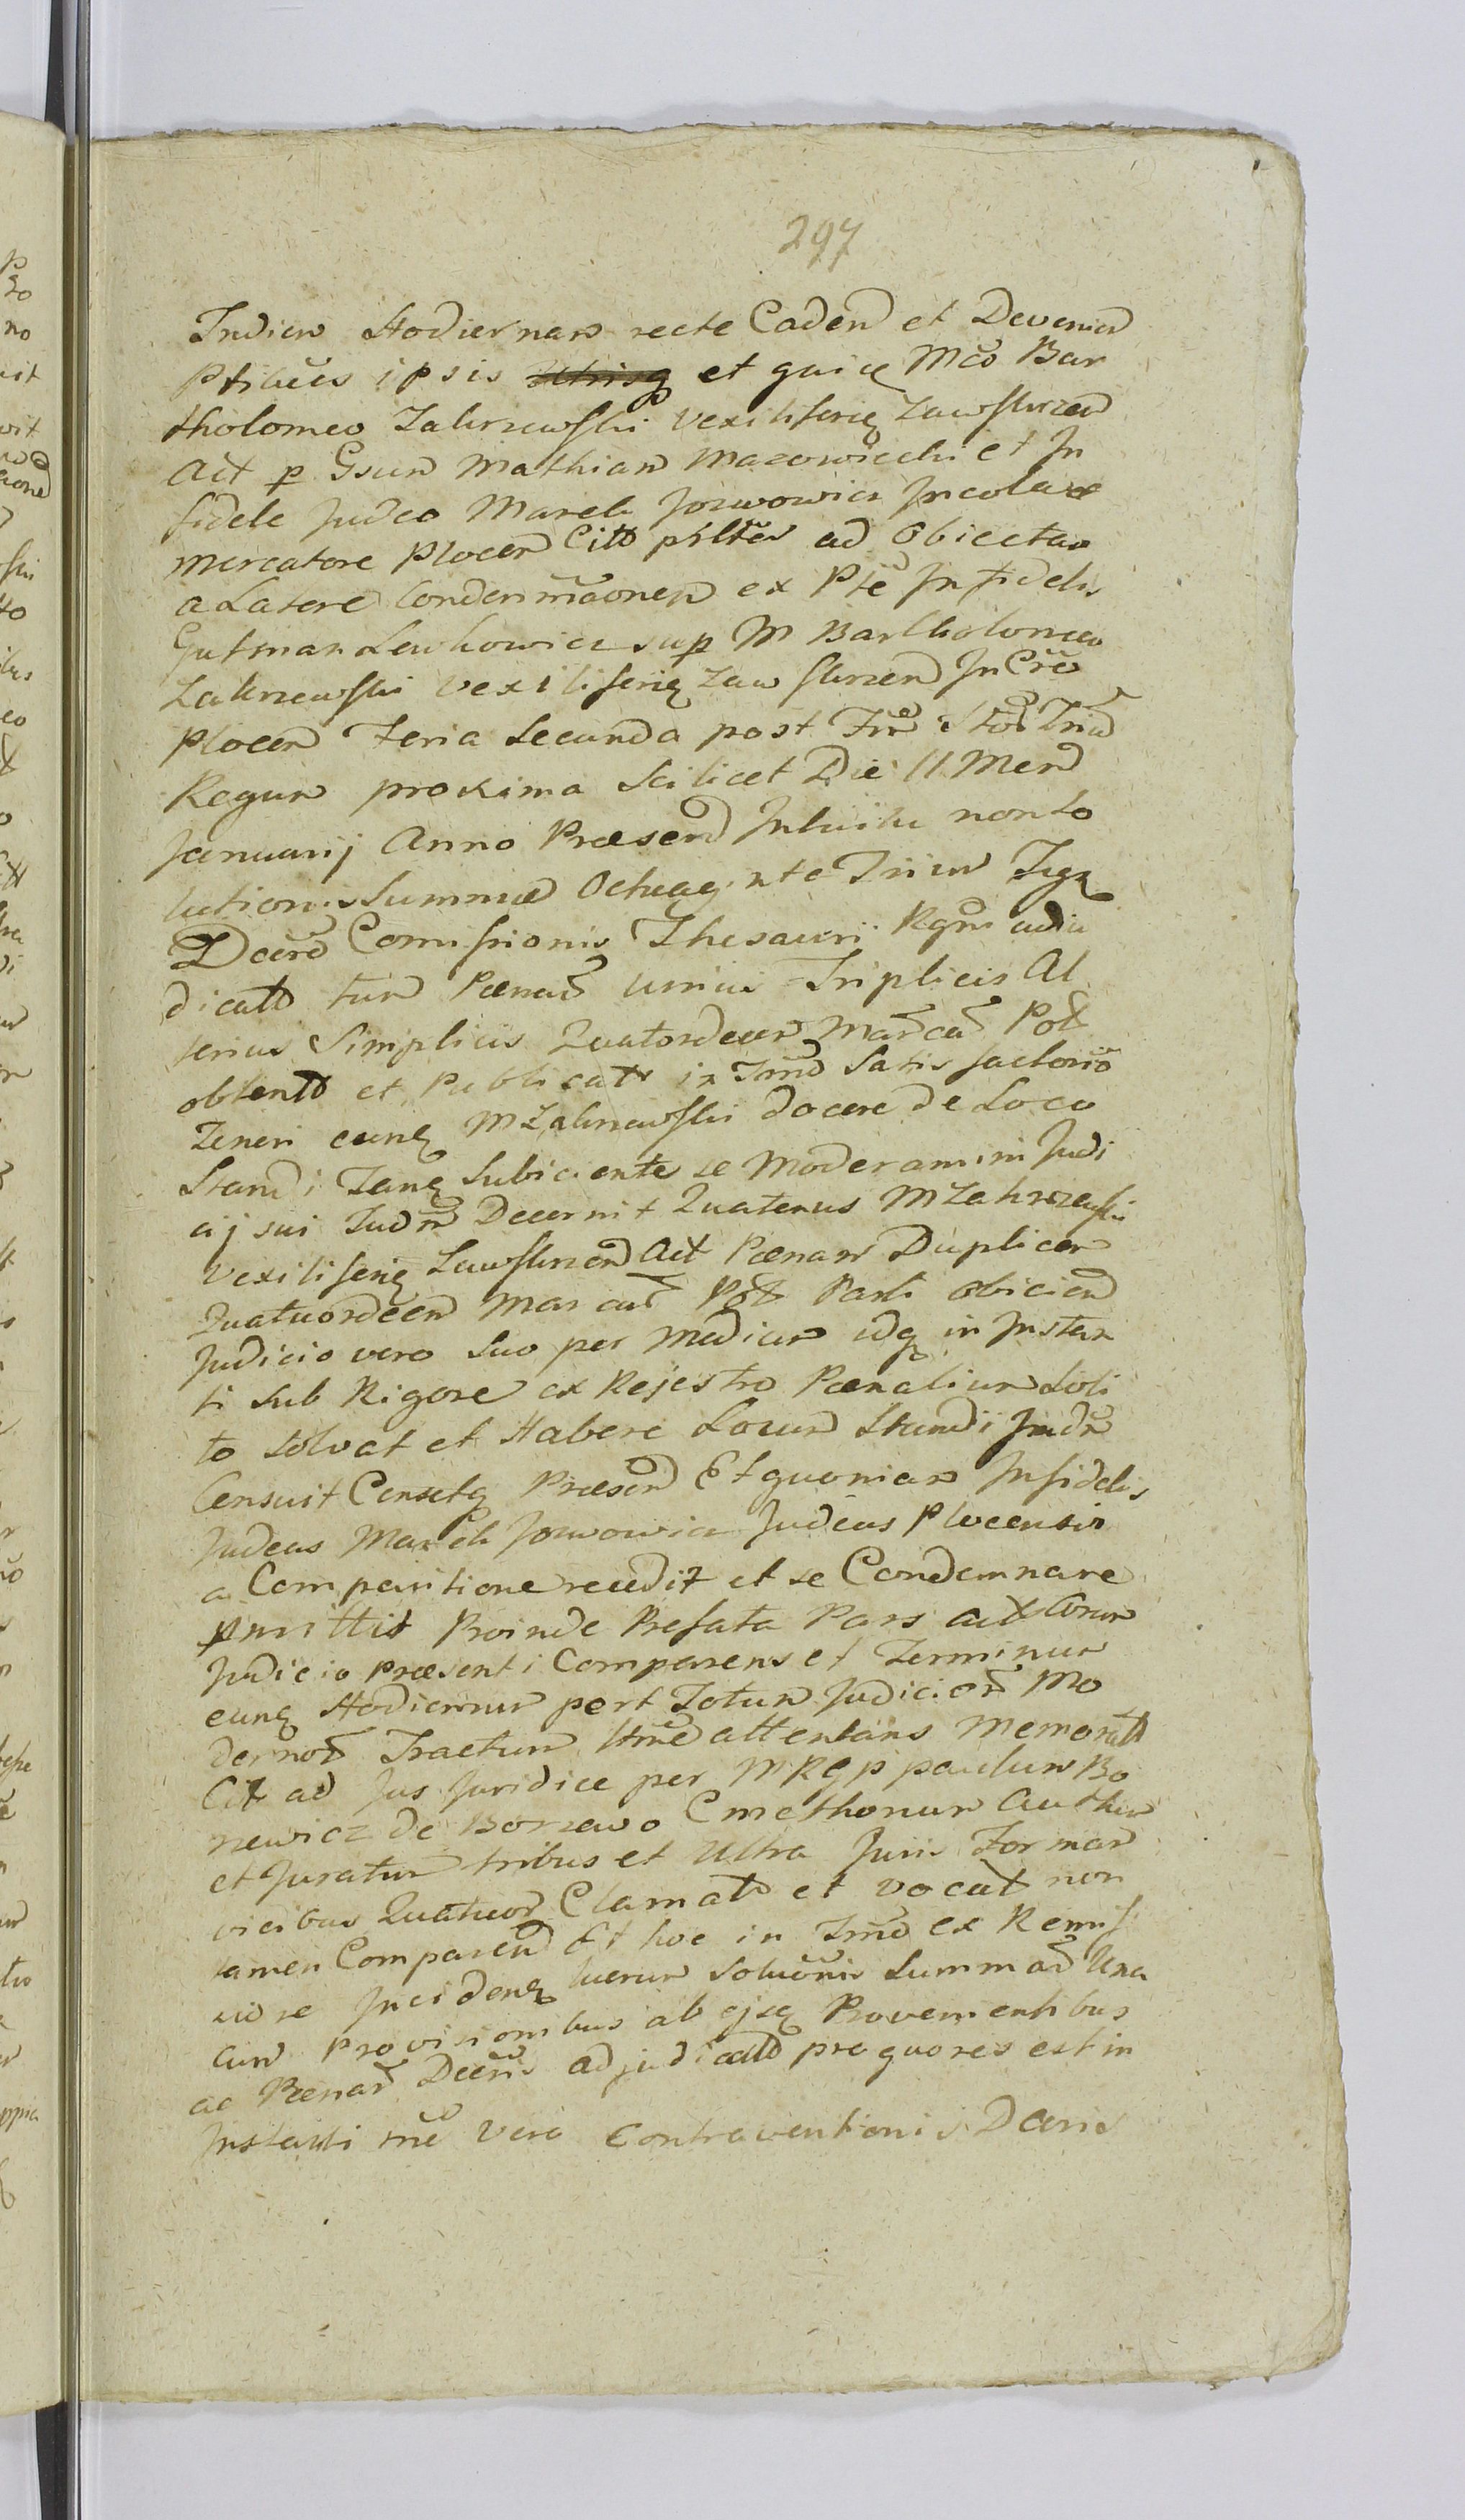 297
Indien Hodiernam recte Caden et Devenien
Ptibus ipsis et quicq Mco Bar
tholomeo Zakrzewski Vexiliferiq Zawskrzen
Act p Gsum Mathiam Mazowiecki et In
fidele Judeo Marek Jozwowicz Incola
Mercatore Plocen Citto psltes ad Obiecta
a Latere Condemnãonem ex Pte Infidelis
Gutman Lewkowicz sup M Bartholomeo
Zakrzewski Vexiliferiq Zawskrzen In Crẽ
Plocen Feria Secunda post Sto Triu
Regum proxima Scilicet Die 11 Men
Januarij Anno Præsen Intuitu non so
lutionis Summæ Octuaginta Trium
Decre Comissionis Thesauri Rgni adiu
dicatt tum Pænar unius Triplicis Al
terius Simplicis Quatordecem Marcar Pol
obtent et Publicat in Tmno Satisfactorio
Teneri eunq M Zakrzewski docere de Loco
Standi Tanq Subiciente se Moderamini Judi
cij sui Judm Decernit Quatenus M Zakrzewski
Vexiliferiq Zawskrzen Act Pænam Duplicem
Quatuordecem Marcar Pol Parti Obicien
Judicio vero Suo per Mediam idq in Instan
ti Sub Rigore ex Rejestro Pænalium Soli
to Solvat et Habere Locum Standi Judm
Censuit Censetq Præsen Et quoniam Infidelis
Judeus Marek Jozwowicz Judeus Plocensis
a Comparitione recedit et se Condemnare
pmittit Proinde Prefata Pars Act Coram
Judicio Præsenti Comparens et Terminum
eunq Hodiernum port Totum Judicior Mo
dernor Tractum attentans Memorat
Citt ad Jus Juridice per M R G P Paulum Bo
rzewicz de Borzewo Cmethonum
et Juratum tribus et Ultra Juris Formam
vicibus Quatuor Clamatt et Vocat non
tamen Comparen Et hoc in Tmno ex Remiss
Inciden Solucõnis Summar Una
cum Provisionibus ab ejsq Provenientibus
ac Pænar Decris adjudicatt pro quo res est in
Instanti Contraventionis Daris